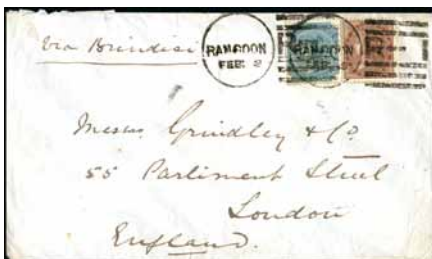 Via Brindisi
RANGOON
FEB 2
RANGOON
FEB 2
Messrs Grindley & Co
55 Parliment Street
London
England.